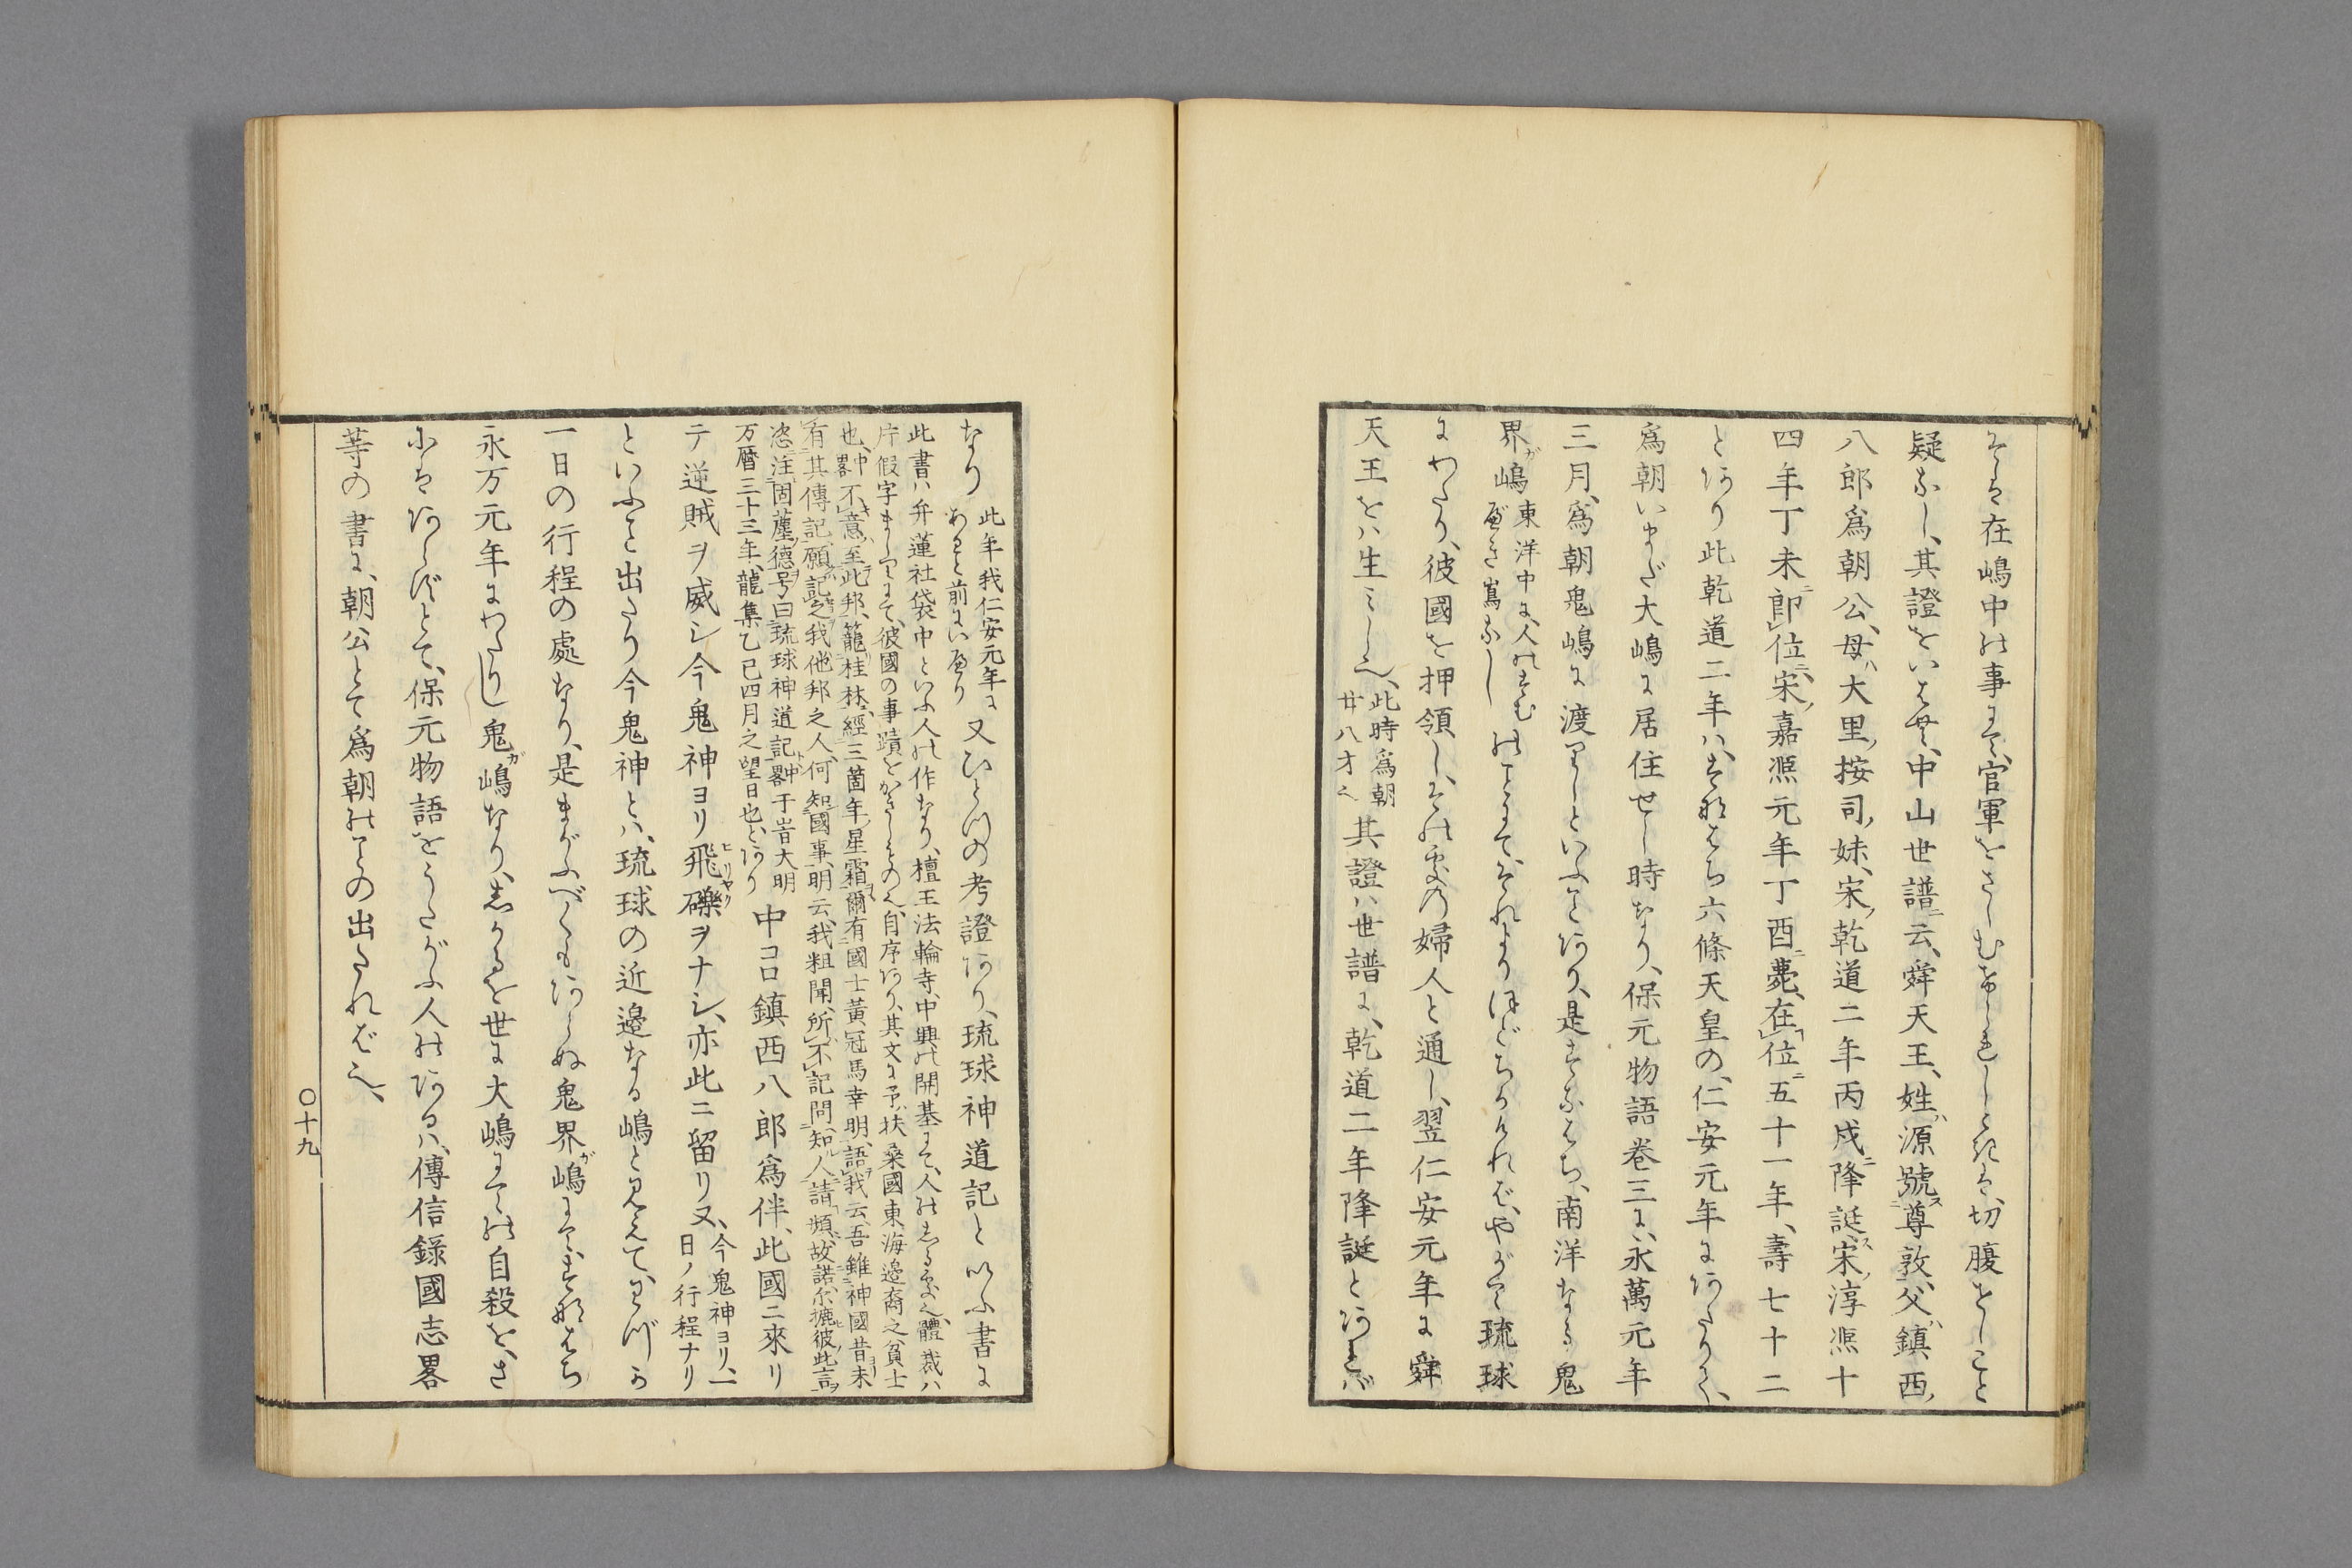 そは在嶋中の事にて、官軍をさしむけられしときは、切腹せしこと
疑なし、其證をいはゞ、中山世譜ニ云、舜天王、姓ハ源號ス尊敦、父ハ鎮西ノ
八郎爲朝公、母ハ大里ノ按司ノ妹、宋ノ乾道二年丙戌ニ降誕ス、宋ノ淳凞十
四年丁未ニ即位ニ、宋ノ嘉凞元年丁酉ニ薨、在位ニ五十一年、壽七十二
とあり此乾道二年ハ、すなはち六條天皇の、仁安元年にあたりて、
爲朝いまだ大嶋に居住せし時なり、保元物語巻三に、永萬元年
三月、爲朝鬼嶋に渡りしといふことあり、是すなはち、南洋なる鬼
界ガ嶋東洋中に、人のすむべき嶌なしのことにて、それよりほどちかければ、やがて琉球
にわたり、彼國を押領し、その處の婦人と通し、翌仁安元年に舜
天王をハ生ミしし也、此時爲朝廿八才也其證ハ世譜に、乾道二年降誕とあれバ
なり此年我仁安元年にあること前にいへり又ひとつの考證あり、琉球神道記といふ書に
此書ハ弁蓮社袋中といふ人の作なり、檀王法輪寺、中興の開基にて、人のしる處也、體裁ハ
片假字ましりにて、彼國の事蹟をかきしもの也、自序あり、其文に予、扶桑國東海邊裔之貧士
也、畧中不意、至此邦、籠桂林、經三箇年ノ星霜爾有國士黃冠馬幸明、語我云、吾雖神國昔未
有其傳記、願記之我他邦之人、何知國事、明云、我粗聞、所不記問、知人請頻、故諾尓摭彼此言ヲ
恣注固蘲德号曰琉球神道記ト畧中于旹大明
万曆三十三年、龍集乙巳四月之望日也、とあり中コロ鎮西八郎爲伴、此國ニ來リ
テ逆賊ヲ威シ今鬼神ヨリ飛礫ヒリヤクヲナシ、亦此ニ留リ又、今鬼神ヨリ、一日ノ行程ナリ
といふこと出たり今鬼神とハ、琉球の近邊なる嶋と見えて、わづか
一日の行程の處なり、是まがふべくもあらぬ鬼界ガ嶋にて、すなはち
永万元年にわたりし鬼ガ嶋なり、しかるを世に大嶋にての自殺を、さ
にはあらずとて、保元物語をうたがふ人のあるハ、傳信錄國志畧
等の書に、朝公とて爲朝のことの出たれば也、
〇十九